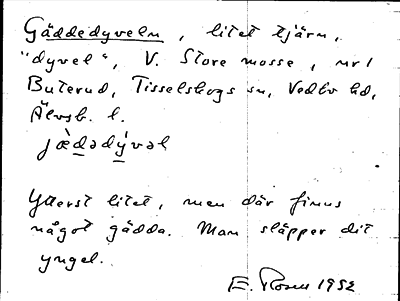 Gäddedyveln, litet tjärn,
"dyvel", V. Store mosse, nr 1
Buterud, Tisselskogs sn, Vedbo hd,
Älvsb. l.
jæ̀dədy̌vəl
Ytterst litet, men där finns
något gädda. Man släpper dit
yngel.
E. Rosen 1952